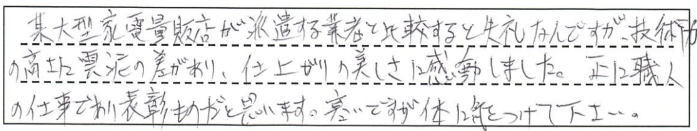 某大型家電量販店が派遣する業者と比較すると失礼なんですが、技術力
の高さに雲泥の差があり、仕上がりの美しさに感動しました。正に職人
の仕事であり表彰ものだと思います。寒いですが体に気をつけて下さい。